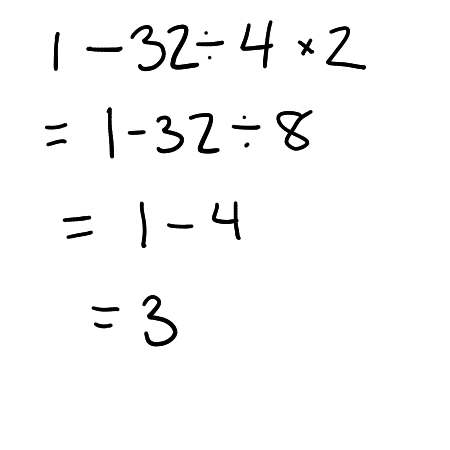 1 − 32 ÷ 4 × 2
= 1 − 32 ÷ 8
= 1 − 4
= 3